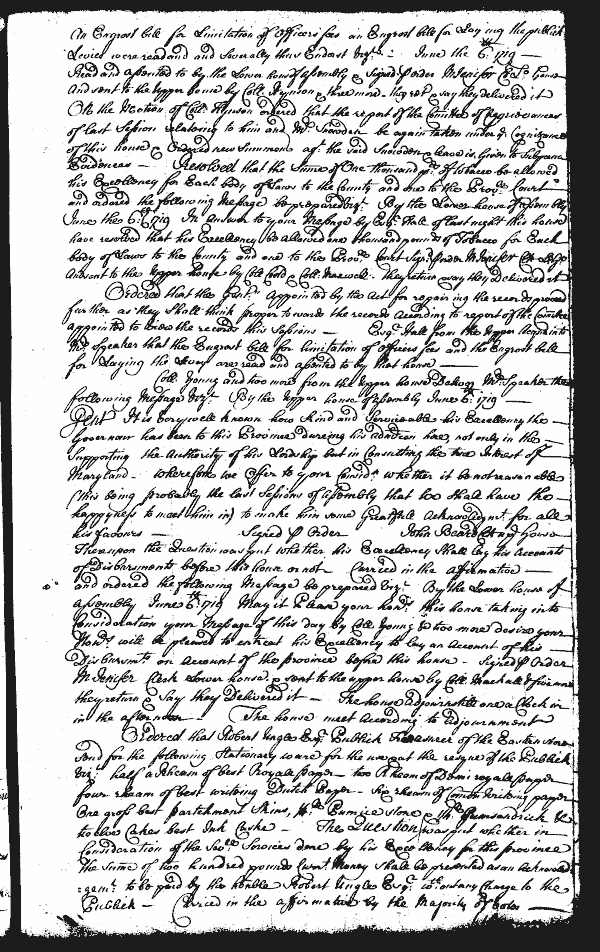 An Engrost bill for Limitation of Officers fees an Engrost bill for Laying the publick
Levies were read and Severally thus Endorst Vizt. June the 6th. 1719
Read and assented to by the Lower house of Assembly Signed p order M Jenifer
And sent to the upper house by Coll. Hynson & three more they ret. & say they delivered it
On the Motion of Coll. Hynson ordered that the report of the Comittee of Agrievances
of last Session relateing to him and Mr. Snowden be again taken under the Cognizance
of this house & Ordered new Summons agt. the said Snowden & leave is Given to Subpena
Evidences — Resolved that the Sume of One thousand pds. of tobacco be allowed
his Excellency for Each body of Laws to the County and one to the Provl. Court
and ordered the following Message be prepared Vizt. By the Lower house of Assembly
June the 6th. 1719 In answer to your Message by Esqr. Hall of last night this house
have resolved that his Excellency be allowed one thousand pounds of Tobacco for Each
body of Laws to the County and one to the Provl. Court Sign. p order M Jenifer
And sent to the Upper house by Coll Ford & Coll. Maxwell. they return & say they Delivered it
Ordered that the Gent. Appointed by the Act for repairing the records proceed
further as they shall think proper towards the records According to report of the Comittee
appointed to view the records this Sessions — Esqr. Hall from the Upper Acquaints
Mr. Speaker that the Engrost bill for limitation of officers fees and the Engrost bill
for Laying the Levy are read and assented to by that house —
Coll. Young and two more from the Upper house Delivers Mr. Speaker the
following Message Vizt. By the Upper house of Assembly June 6th. 1719 —
Gent. It is very well known how Kind and Serviceable his Excellency the
Governour has been to this Province dureing his admtion here, not only in the
Supporting the Authority of his Lordship but in Consulting the true Interest of
Maryland — wherefore we Offer to your Considn. whether it be not reasonable
(this being probably the last Sessions of Assembly that wee Shall have the
happyness to meet him in) to make him some Greatfull Acknowledgmt. for all
his favours — Signed p Order John Beard up. House
Thereupon the Question was put whether his Excellency Shall lay his Accounts
of Disbursments before this house or not. Carried in the Affirmative —
and ordered the following Message be prepared Vizt. By the Lower house of
Assembly June 6th. 1719 May it Please your honrs. this house taking into
consideration your Message of this day by Coll Young & two more desire your
Honrs. will be pleased to entreat his Excellency to lay an Account of his
Disbursmts. on Account of the province before this house — Signed p Order
M Jenifer Clerk Lower house & sent to the upper house by Coll. Mackall & five more
they return & Say they Delivered it — The house adjourns till one a Clock in
in the afternoon — The house meet According to adjournment
Ordered that Robert Ungle Esqr. Publick Treasurer of the Eastern shore
Send for the following Stationary ware for the use and the of the Publick
Vizt. half a Rheam of best Royall paper — two Rheam of Demi royall paper
four rheam of best writing Dutch Paper — Six rheam of Comon writing paper
One gross best partchment Skins, Pumice stone &
twelve Cakes best Ink Cake — The Question was put whether in
Consideration of the Sevl. Services done by his Excellency for this province
the Sume of two hundred pounds Currt. Money Shall be presented as an Acknowled
:gemt. to be paid by the honble. Robert Ungle Esqr. without any Charge to the
Publick — Carried in the affirmative by the Majority of Votes —